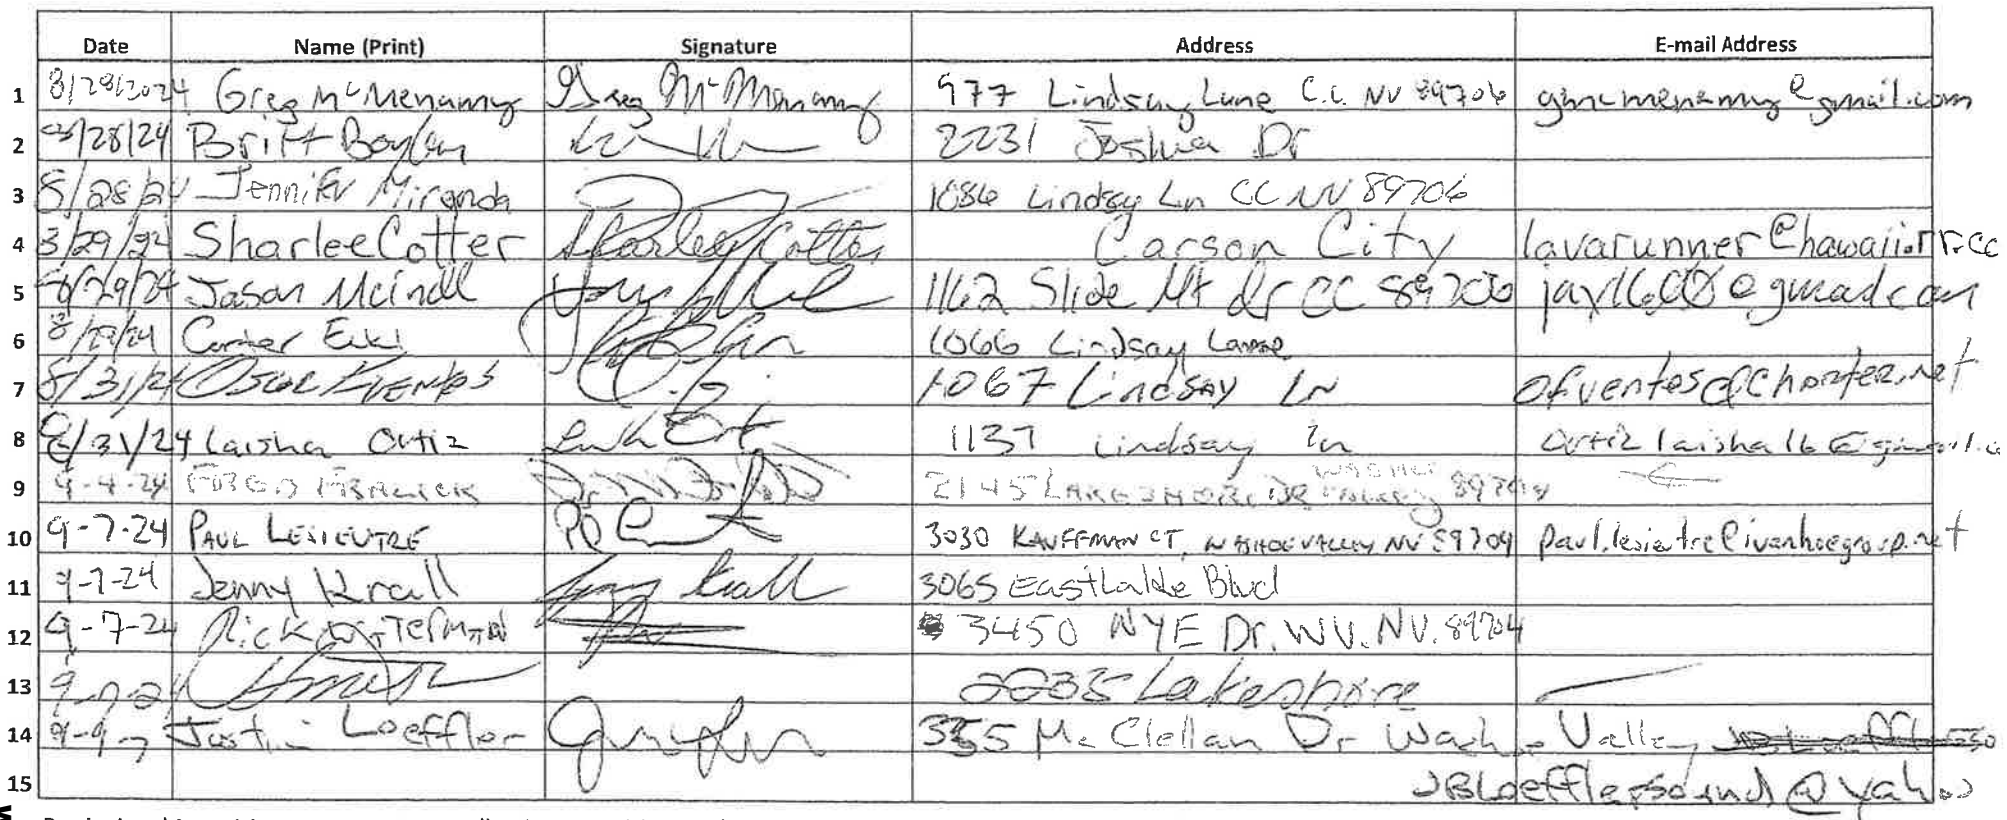 Date Name (Print) Signature Address E-mail Address
1 8/28/2024 Greg McMenamy Greg McMenamy 977 Lindsay Lane C.C. NV 89706 ghmcmenamy@gmail.com
2 8/28/24 Britt Boylan 2231 Joshua Dr
3 8/28/24 Jennifer Miranda 1086 Lindsay Ln CC NV 89706
4 8/29/24 Sharlee Cotter Sharlee Cotter Carson City lavarunner@hawaii.rr.co
5 8/29/24 Jason 1162 Slide Mt dr CC 89706
6 8/29/24 1066 Lindsay Lane
7 8/31/24 1067 Lindsay Ln ofventes@charter.net
8 8/31/24 Laisha Ortiz 1137 Lindsay ln ortizlaisha16@gmail.c
9 9-4-24 2145 Lakeshore Dr Washoe Valley 89704
10 9-7-24 Paul Lesieutre 3030 Kauffman CT, Washoe Valley NV 89704 paul.lesieutre@ivanhoegroup.net
11 9-7-24 Jenny Krall Jenny Krall 3065 Eastlake Blvd
12 9-7-24 Rick 3450 NYE Dr. WV. NV. 89704
13 9-7-24 2235 Lakeshore
14 9-9- Justin Loeffler 335 McClellan Dr Washoe Valley
15